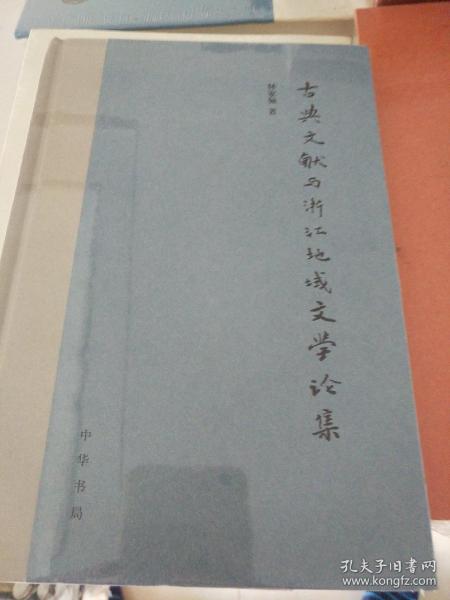 古典文献与浙江地域文学论集
著
中华书局
孔夫子旧书网
www.kongfz.com